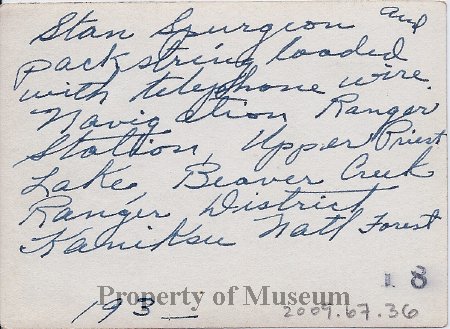 Stan Spurgeon and
packstring loaded
with telephone wire.
Navigation Ranger
Station, Upper Priest
Lake, Beaver Creek
Ranger District
Kaniksu Natl Forest
193_
Property of Museum
18
2007.67.36